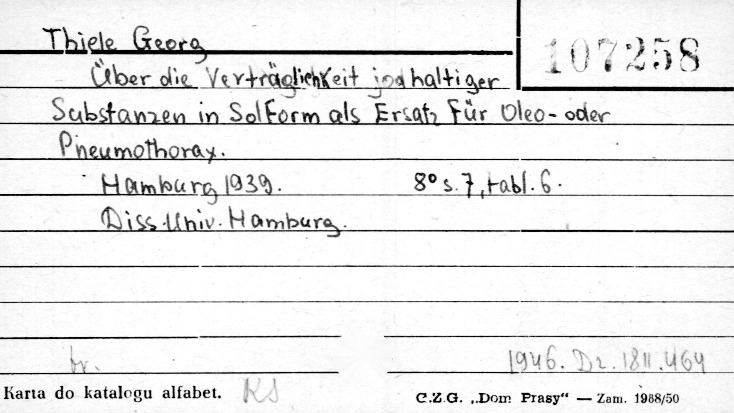 Thiele Georg
107258
Über die Verträglichkeit jodhaltiger
Substanzen in Solform als Ersatz für Oleo- oder
Pneumothorax.
Hamburg 1939. 8° s. 7, tabl. 6.
Diss. Univ. Hamburg.
br. 1946. Dz. 1811.464
Karta do katalogu alfabet. KS C.Z.G. „Dom Prasy“ — Zam. 1988/50